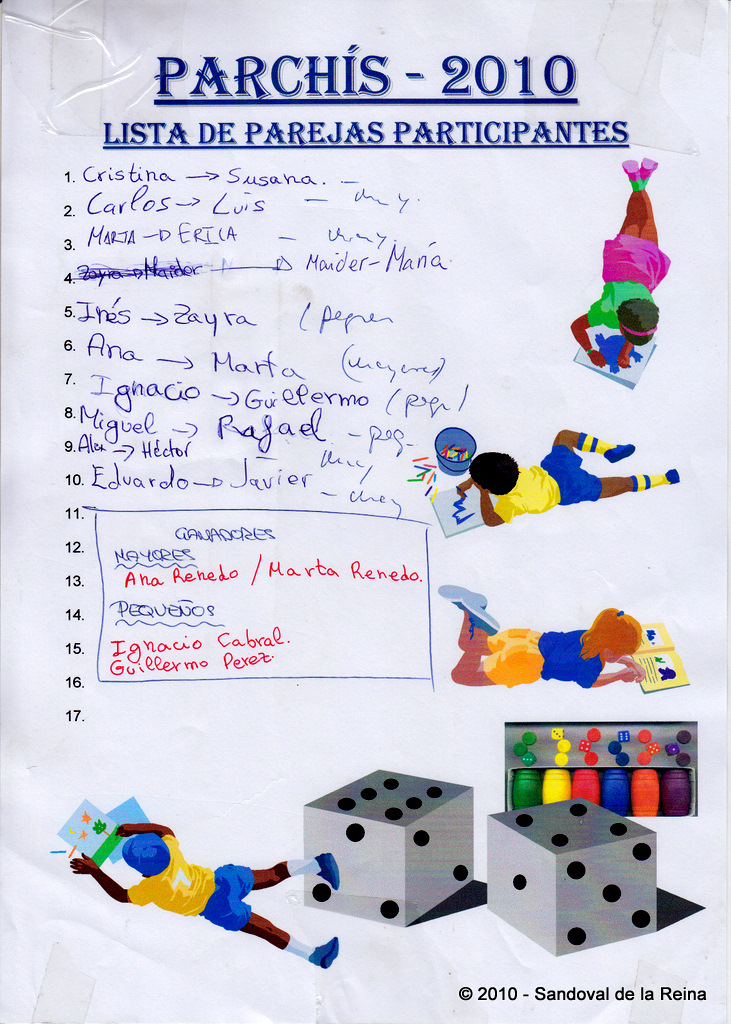 PARCHÍS - 2010
LISTA DE PAREJAS PARTICIPANTES
1. Cristina → Susana. –
2. Carlos → Luis – may.
3. MARTA → ERICA – may.
4. Zayra → Maider → Maider-María.
5. Inés → Zayra (pequeñ
6. Ana → Marta (mayores)
7. Ignacio → Guillermo (peq)
8. Miguel → Rafael – peq-
9. Alex → Héctor – may
10. Eduardo → Javier – may
11.
GANADORES
12. MAYORES
13. Ana Renedo / Marta Renedo.
14. PEQUEÑOS
15. Ignacio Cabral.
Guillermo Perez.
16.
17.
© 2010 - Sandoval de la Reina